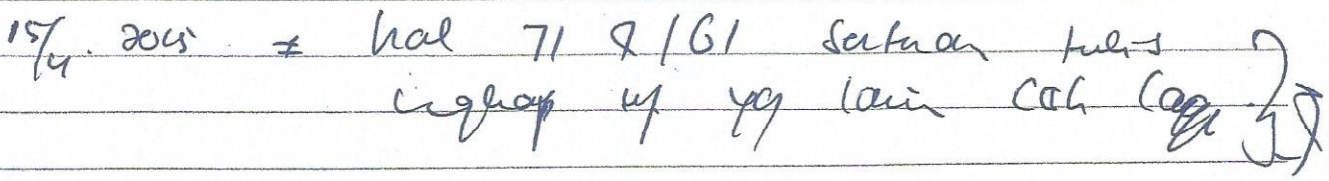 15/4. 2015 * hal 71 8/61 satuan tulis
lengkap u/ yg lain cek lagi